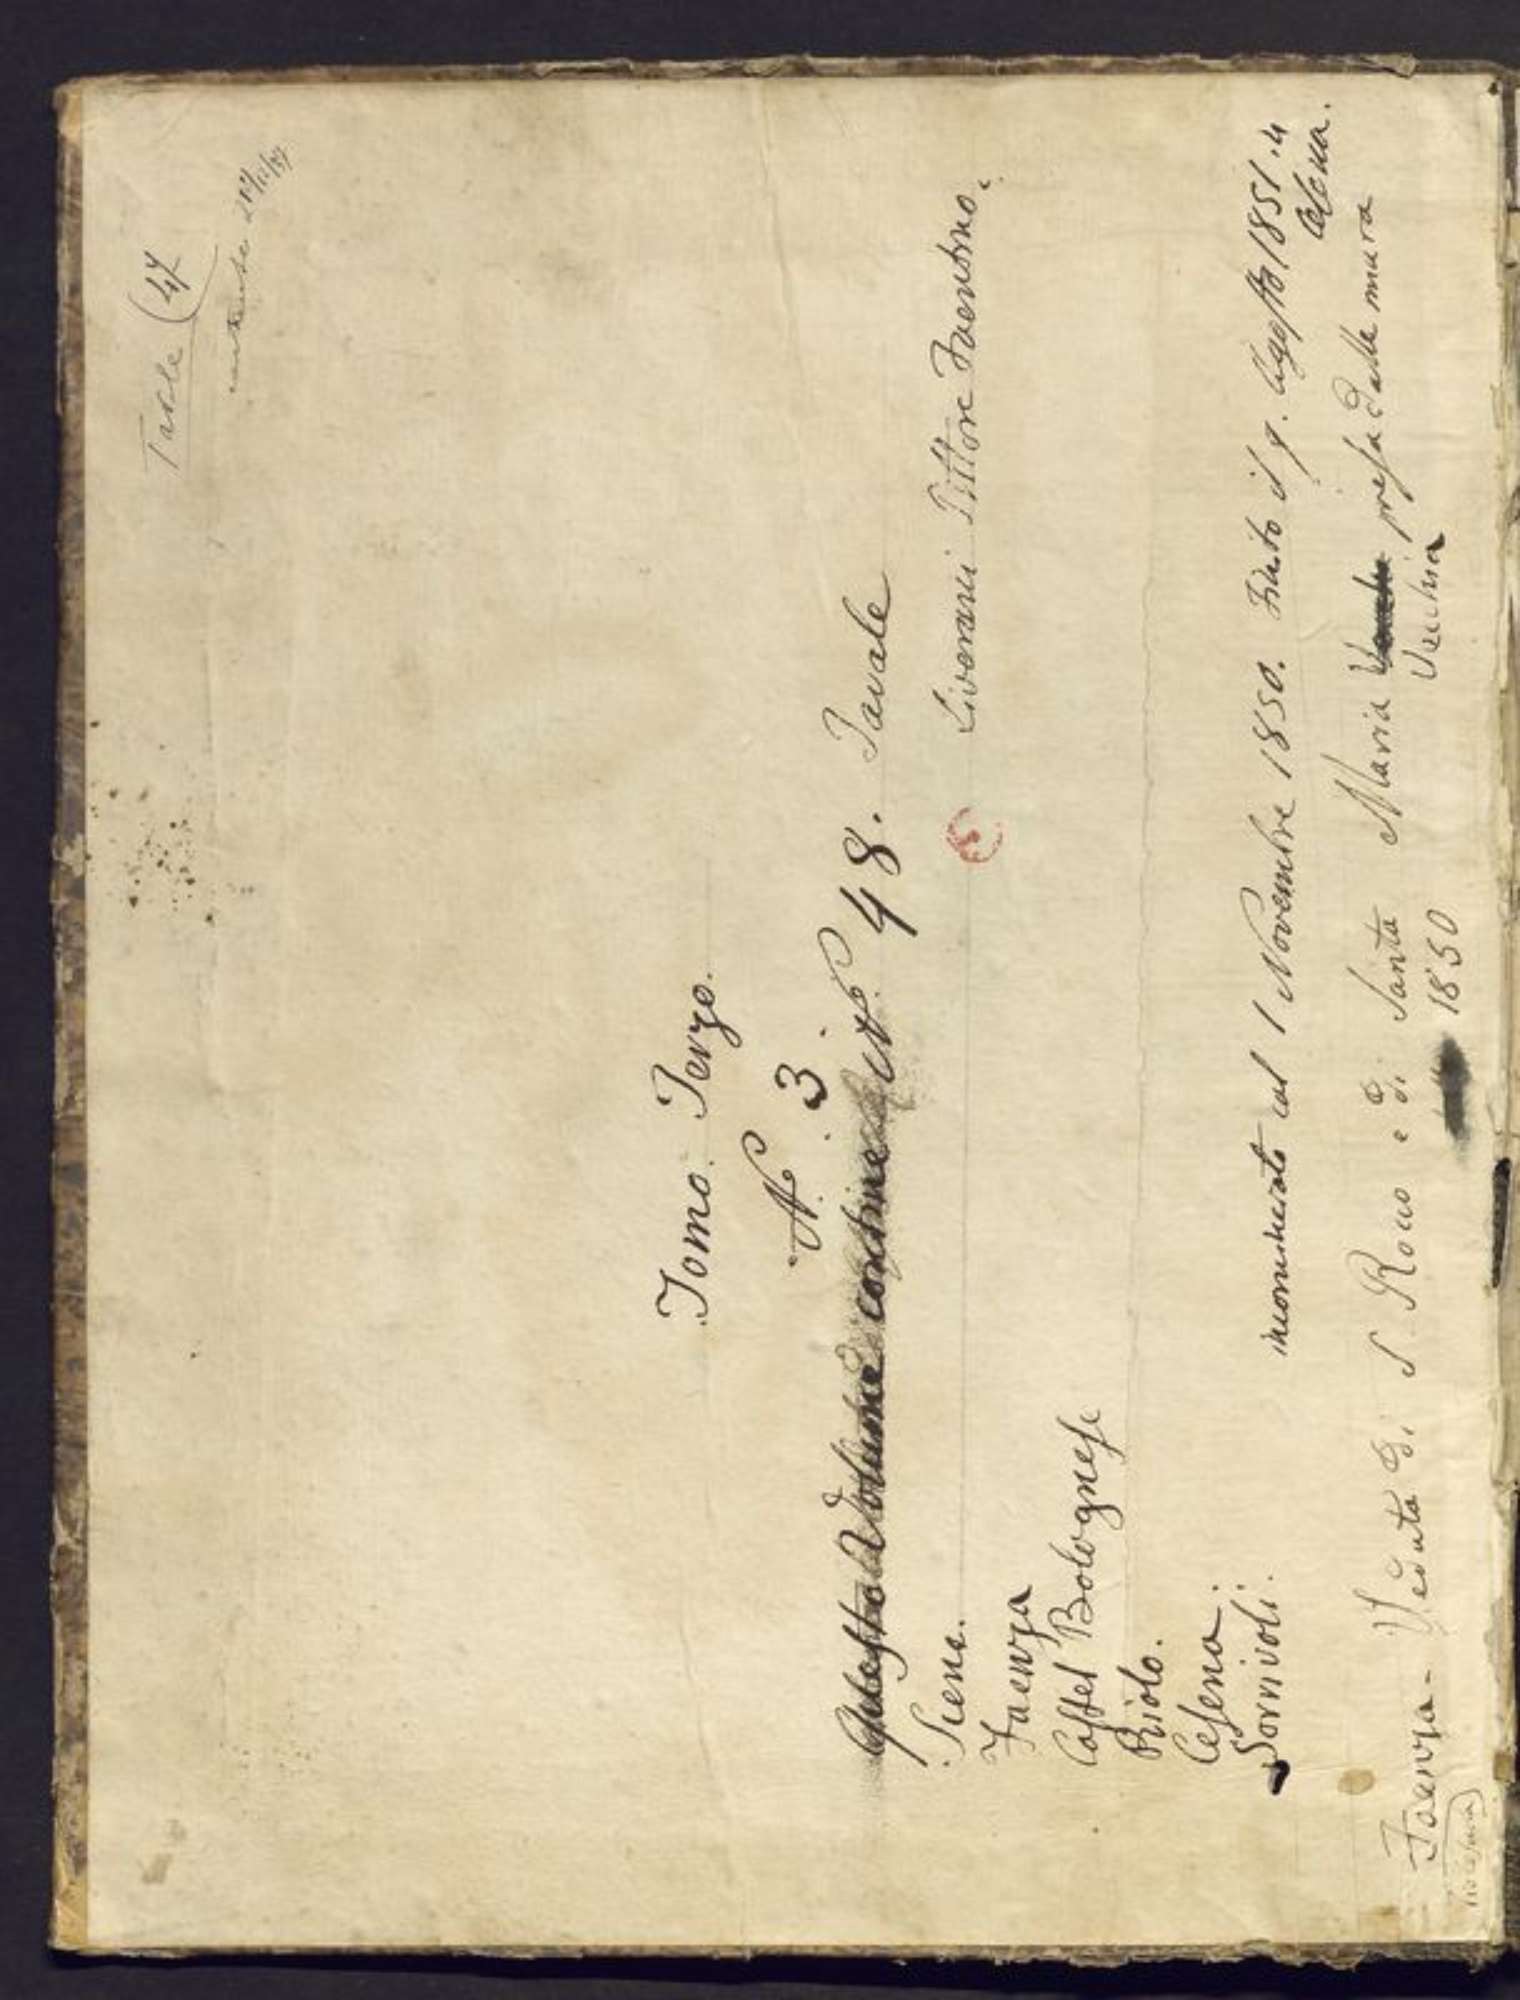 Tavole (47
Tomo. Terzo.
N.° 3.
Questo Volume contiene N.° 48. Tavole
Siena.
Liverani Pittore Faentino.
Faenza
Castel Bolognese
Riolo.
Cesena.
Sorrivoli.
incominciato col 1 Novembre 1850. Finito il 9. Agosto 1851. in
Cesena.
Faenza - Veduta di S. Rocco e di Santa Maria presa dalle mura
1850 Vecchia